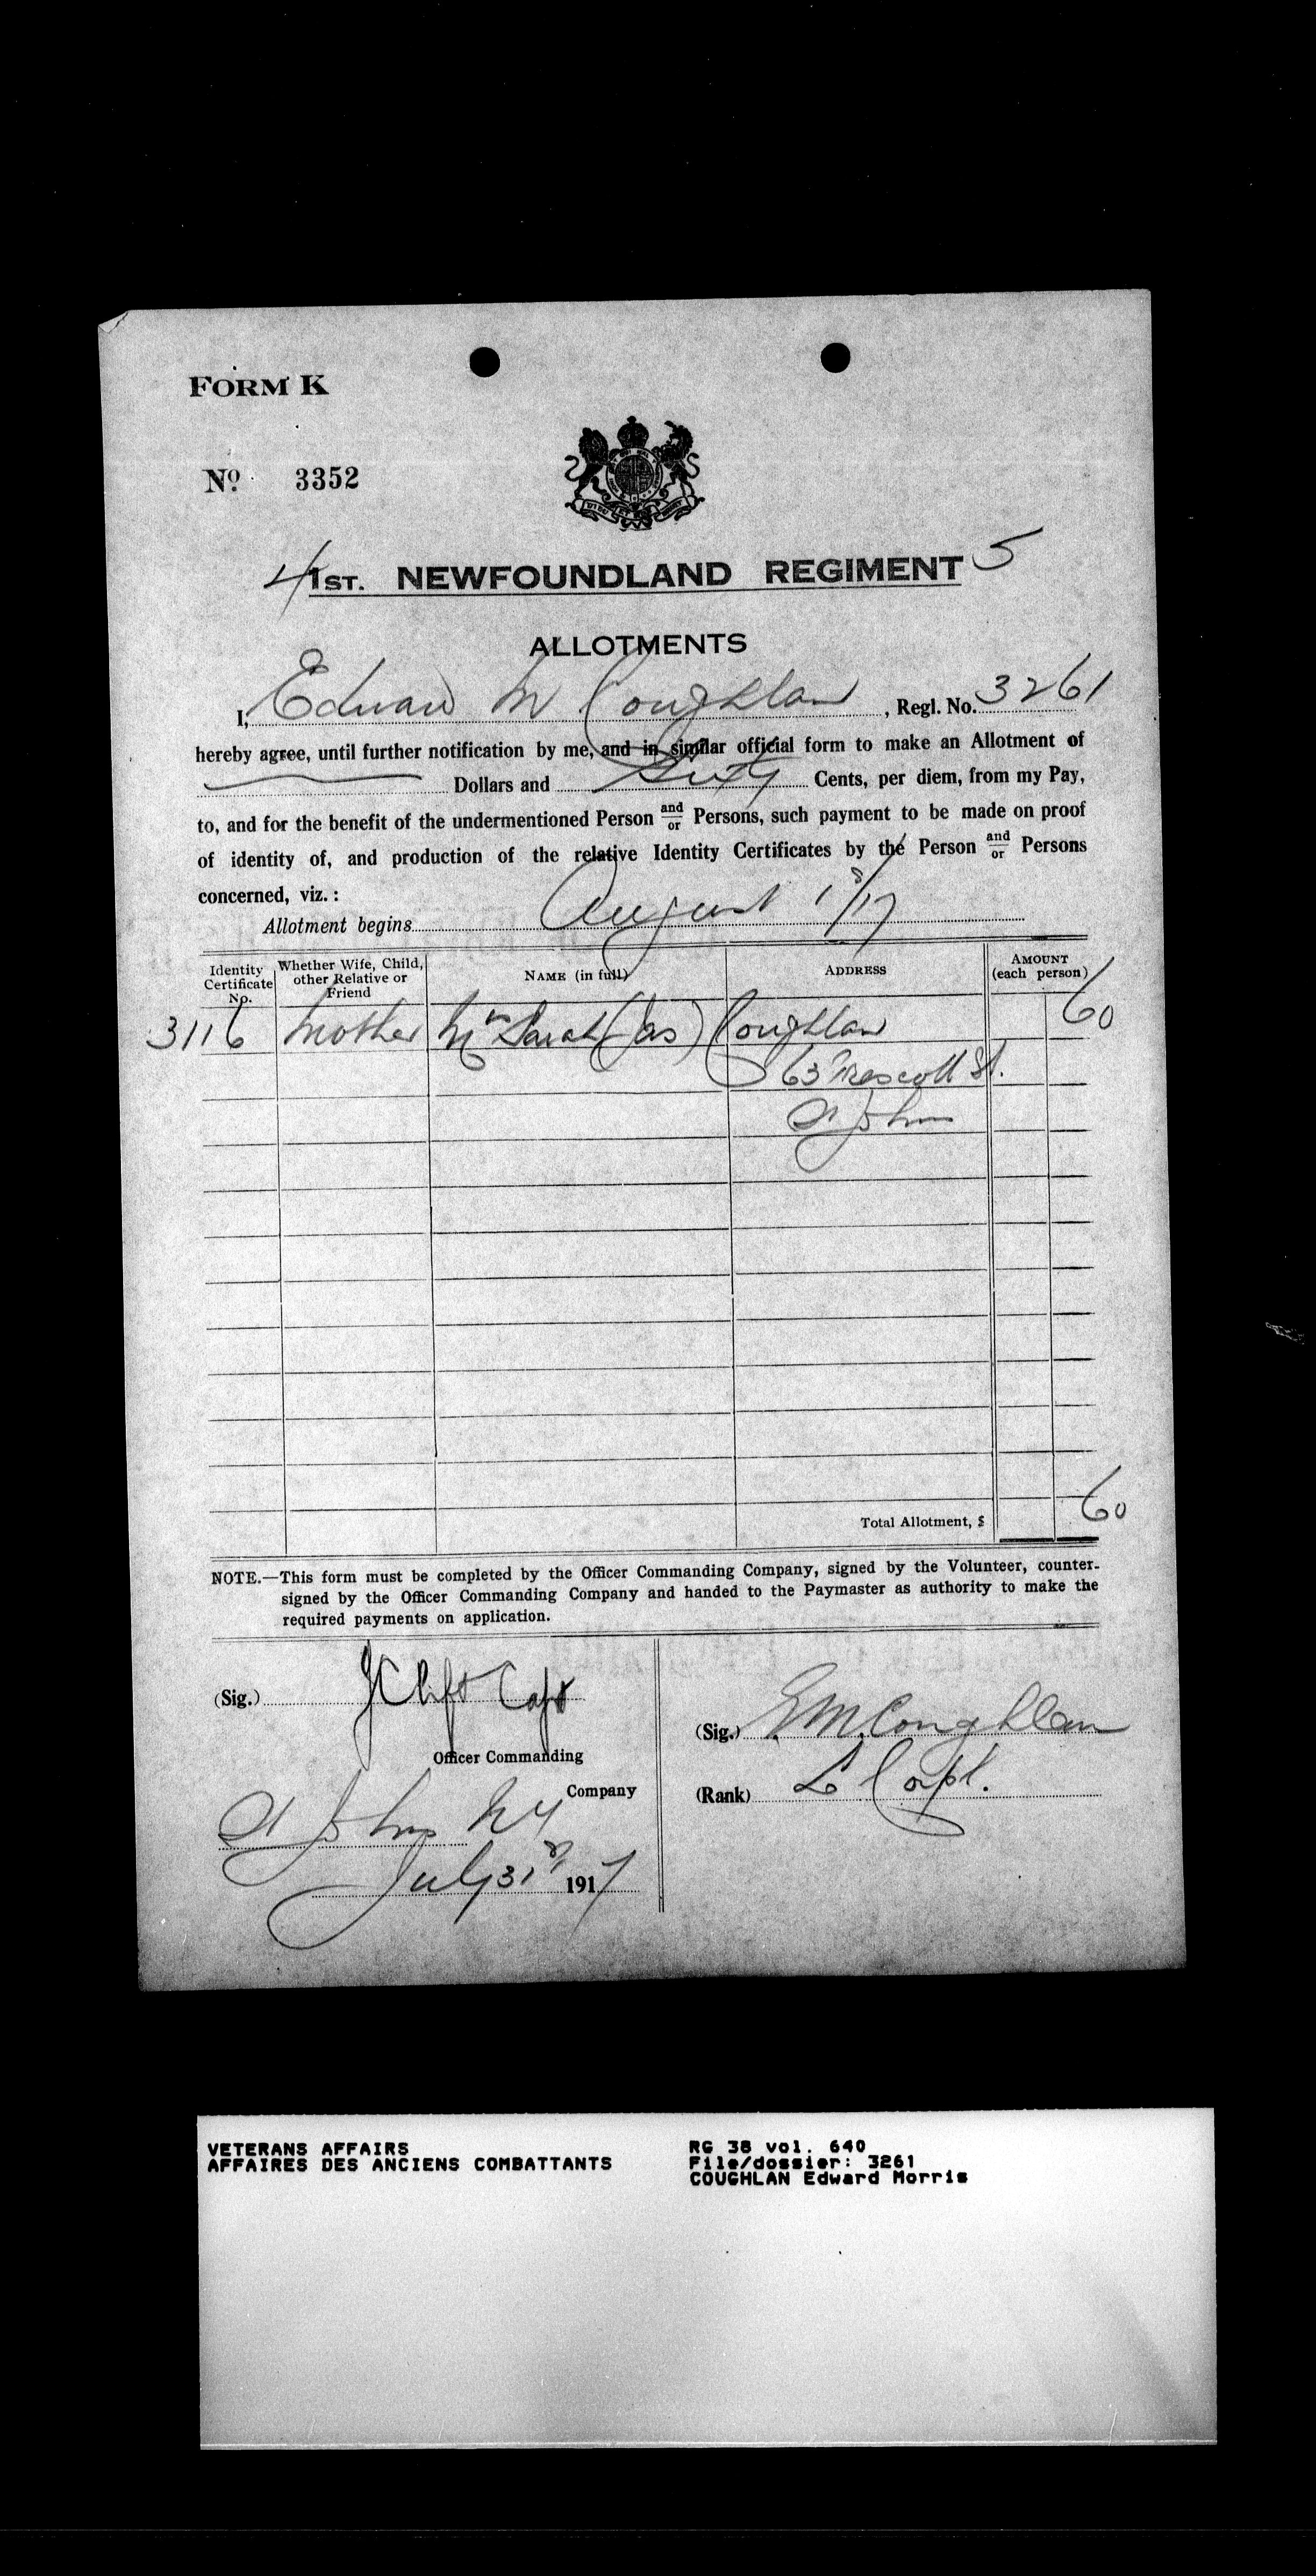 FORM K
No. 3352
4 1ST. NEWFOUNDLAND REGIMENT 5
ALLOTMENTS
I, Edward M Coughlan, Regl. No. 3261
hereby agree, until further notification by me, and in similar official form to make an Allotment of
Dollars and Sixty Cents, per diem, from my Pay,
to, and for the benefit of the undermentioned Person and/or Persons, such payment to be made on proof
of identity of, and production of the relative Identity Certificates by the Person and/or Persons
concerned, viz.:
Allotment begins August 1st/17
Identity Certificate No. | Whether Wife, Child, other Relative or Friend | NAME (in full) | ADDRESS | AMOUNT (each person)
3116 Mother Mrs Sarah (Jas) Coughlan 60
63 Prescott St.
St Johns
Total Allotment, $ 60
NOTE.—This form must be completed by the Officer Commanding Company, signed by the Volunteer, counter-
signed by the Officer Commanding Company and handed to the Paymaster as authority to make the
required payments on application.
(Sig.) J Clift Capt
Officer Commanding
Company
St Johns
July 31st 1917
(Sig.) E.M. Coughlan
(Rank) L Corpl.
VETERANS AFFAIRS
AFFAIRES DES ANCIENS COMBATTANTS
RG 38 vol. 640
File/dossier: 3261
COUGHLAN Edward Morris